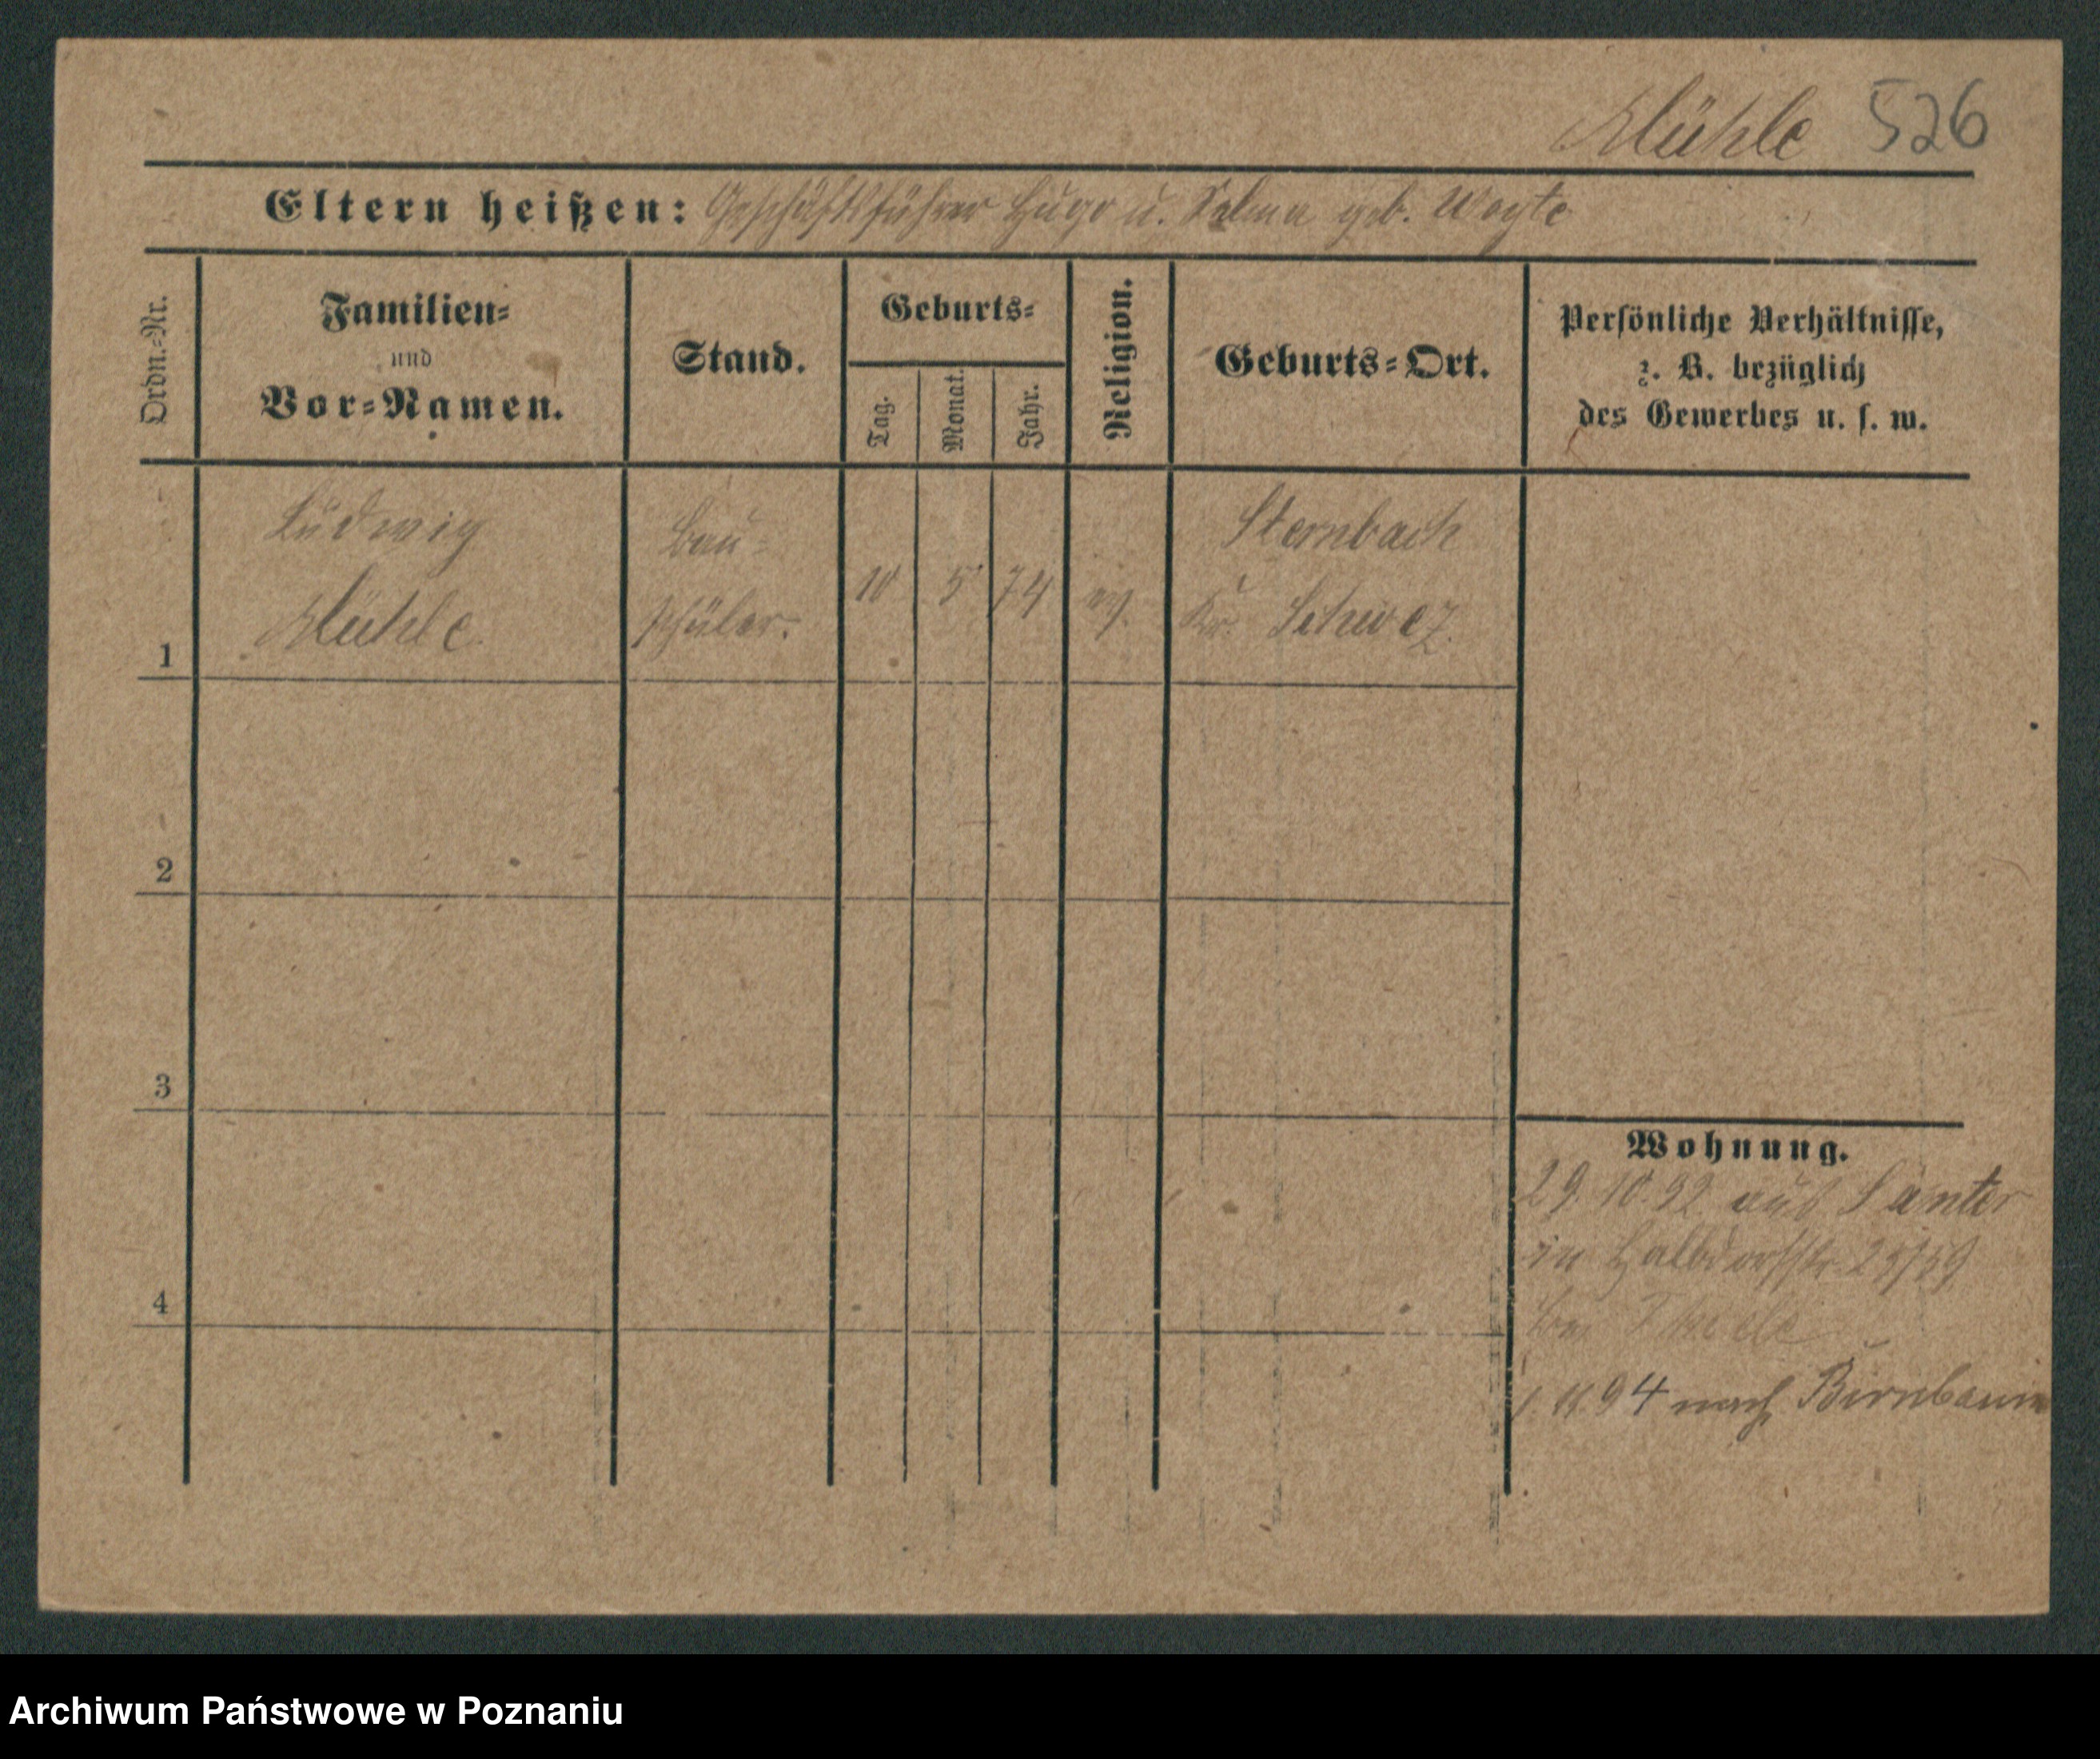 Mühle 526
Eltern heißen: Geschäftsführer Hugo u. Selma geb. Woyte
Ordn.-Nr.
Familien-
und
Vor-Namen.
Stand.
Geburts-
Tag.
Monat.
Jahr.
Religion.
Geburts-Ort.
Persönliche Verhältnisse,
z. B. bezüglich
des Gewerbes u. s. w.
1
Ludwig
Mühle.
Bau-
schüler.
10
5
74
ev.
Sternbach
Kr. Schwez.
2
3
4
Wohnung.
29. 10. 92 aus Samter
in Halbdorfstr.
bei
94 nach Birnbaum
Archiwum Państwowe w Poznaniu